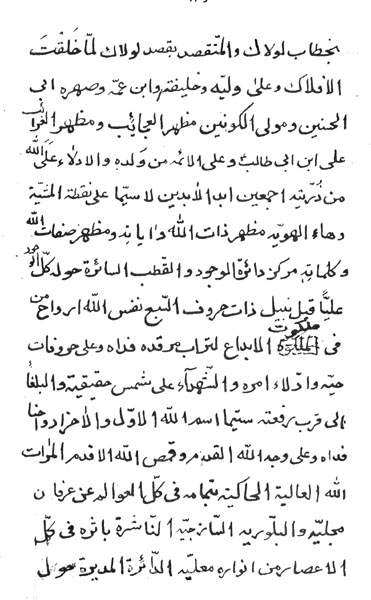 بخطاب لولاك والمتقصد بقصد لولاك لما خلقت
الافلاك وعلى وليه وخليفته وابن عمه وصهره ابى
الحسنين ومولى الكونين مظهر العجايب ومظهر الغرائب
على ابن ابى طالب وعلى الائمه من ولده والادلاء على الله
من ذريته اجمعين ابد الابدين لا سيما على نقطة المثنية
وهاء الهويه مظهر ذات الله واياته ومظهر صفات الله
وكلماته مركز دائرة الوجود والقطب السائرة حوله كل الوجود
عليا قبل نبيل ذات حروف السبع نفس الله ارواح من
فى ملكوت الابداع لتراب مرقده فداه وعلى حروفات
حيه وادلاء امره والشهداء على شمس حقيقية والبلغا
الى قرب رفعته سيما اسم الله الاول والاخر ارواحنا
فداه وعلى وجه الله القدم وقمص الله الاقدم المرات
الله العالية الحاكية بتمامه فى كل العوالم عن عرفان
مجليه والبلوريه الساذجيه الناشرة باثره فى كل
الاعصار من انواره معليه الدائرة المديرة حول